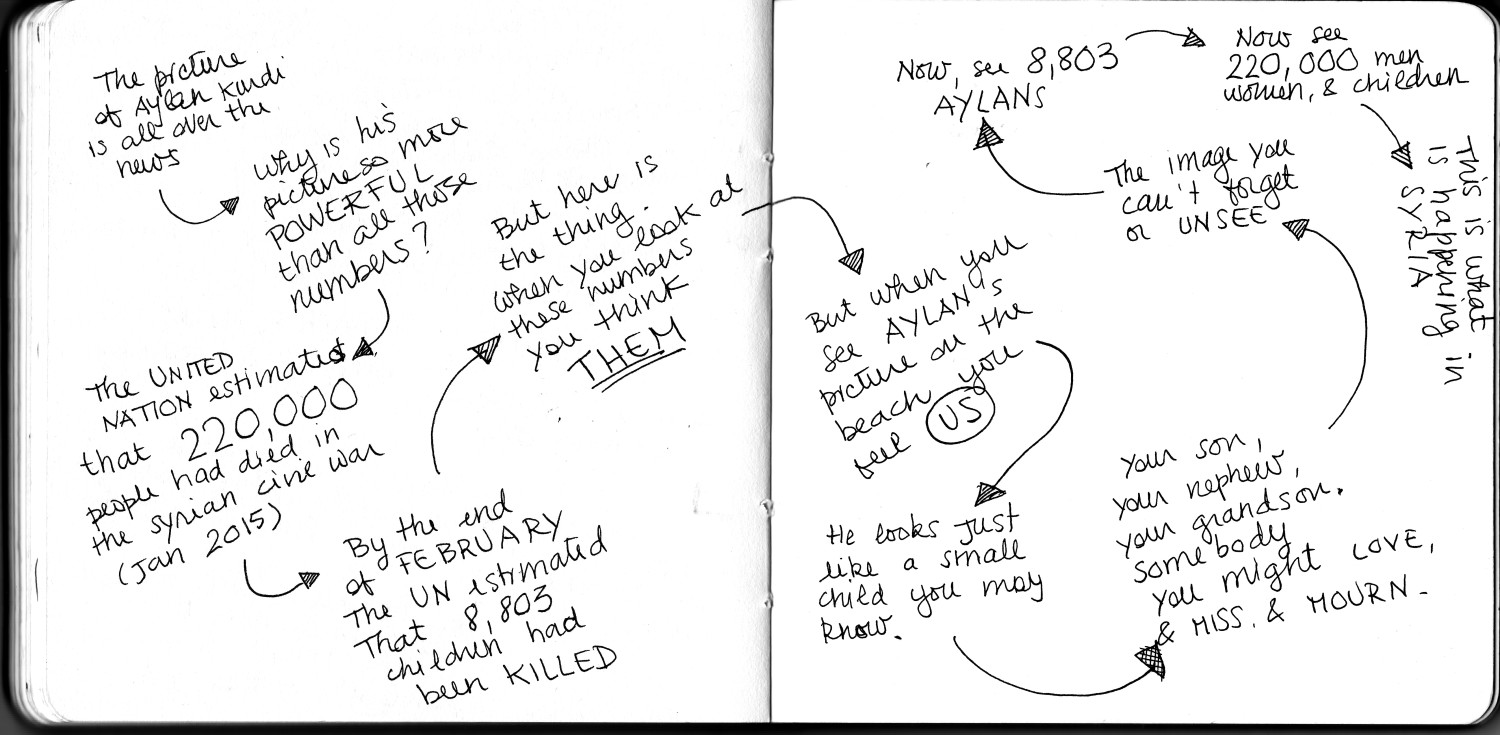 The picture
of Aylan Kurdi
is all over the
news
Why is his
picture so more
POWERFUL
than all those
numbers?
The UNITED
NATION estimated
that 220,000
people had died in
the syrian civil war
(Jan 2015)
By the end
of FEBRUARY
The UN estimated
That 8,803
children had
been KILLED
But here is
the thing.
when you look at
these numbers
you think
THEM
But when you
see AYLAN's
picture on the
beach you
feel US
He looks just
like a small
child you may
know.
your son,
your nephew,
your grandson.
somebody
you might LOVE,
& MISS. & MOURN.
The image you
can't forget
or UNSEE
Now, see 8,803
AYLANS
Now see
220,000 men
women, & children
This is what
is happening in
SYRIA